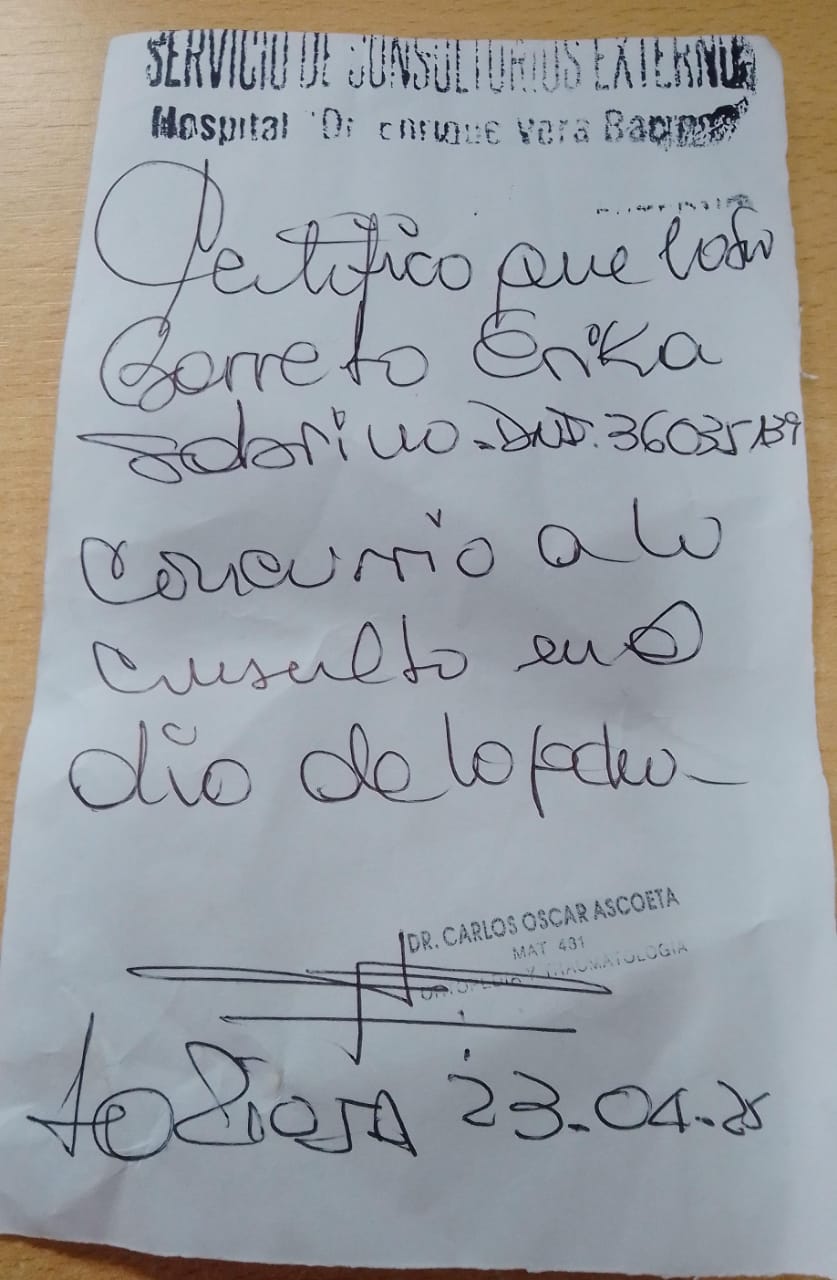 SERVICIO DE CONSULTORIOS EXTERNOS
Hospital "Dr Enrique Vera Barros
Certifico que la Sra
Barreto Erika
Sabrina - DNI. 36035139
concurrió a la
consulta en el
día de la fecha
DR. CARLOS OSCAR ASCOETA
MAT 431
ORTOPEDIA Y TRAUMATOLOGIA
La Rioja 23-04-25